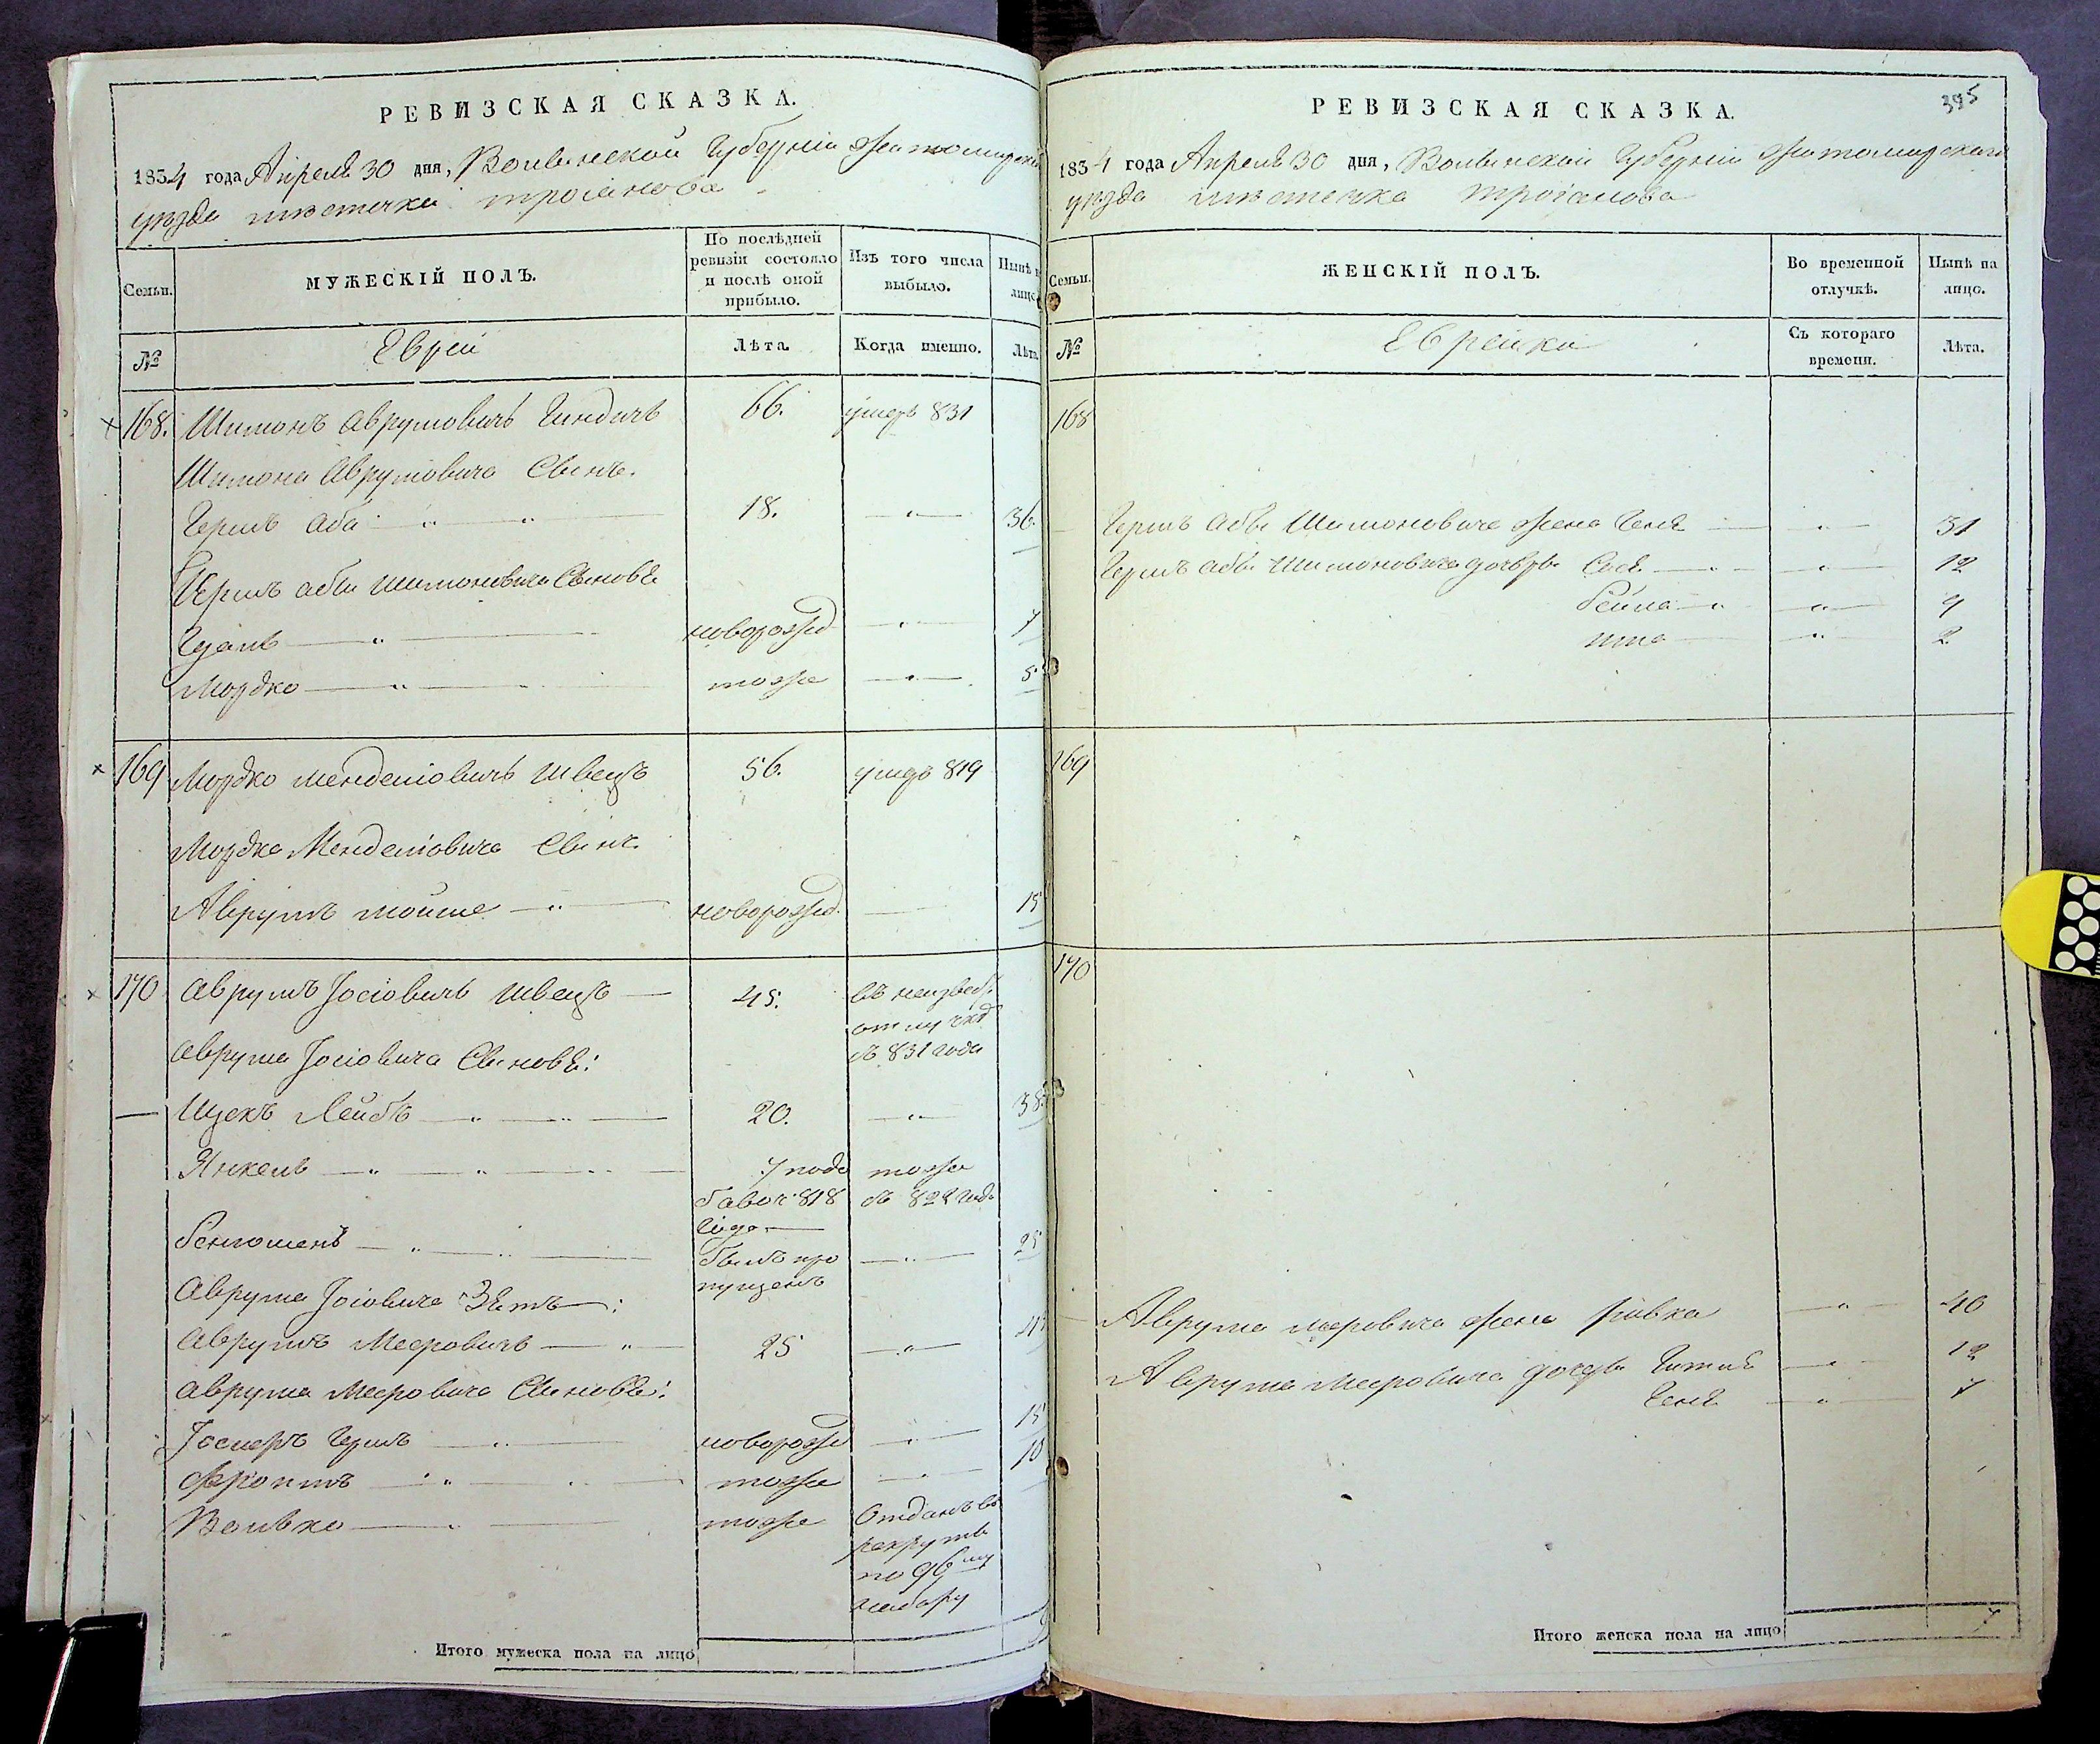 РЕВИЗСКАЯ СКАЗКА.
1834 года Апреля 30 дня, Волынской Губерніи Житомирска
уезда местечка Троянова
Семьи.
МУЖЕСКІЙ ПОЛЪ.
По послѣдней ревизіи состояло и послѣ оной прибыло.
Изъ того числа выбыло.
Нынѣ на лицо
№
Еврей
Лѣта.
Когда именно.
Лѣта.
168. Шимонъ Аврумовичъ 66. умеръ 831
Шимона Аврумовича Сынъ.
Гершъ Аба 18. 36.
Гершъ Абы Шимоновича Сыновя
новорожд 7
Мордко тоже 5
169 Мордко Менделіовичъ Швецъ 56. умеръ 819
Мордка Менделіовича Сынъ.
Аврумъ Мойше новорожд. 15
170 Аврумъ Іосіовичъ Швецъ 45. въ неизвест.
отлучке
съ 831 года
Аврума Іосіовича Сыновя:
Ицекъ Лейбъ 20. 38
Янкель 7 подо тоже
бавоч. 818 съ 828 года
года
Бенюменъ былъ про 25
пущенъ
Аврума Іосіовича Зять:
Аврумъ Мееровичъ 25 41
Аврума Мееровича Сыновя:
Гершъ новорожд 15
Фроимъ тоже 10
Волько тоже Отданъ въ
рекруты
по 96му
набору
Итого мужеска пола на лицо
395
РЕВИЗСКАЯ СКАЗКА.
1834 года Апреля 30 дня, Волынской Губерніи Житомирскаго
уезда местечка Троянова
Семьи.
ЖЕНСКІЙ ПОЛЪ.
Во временной отлучкѣ.
Нынѣ на лицо.
№
Еврейки
Съ котораго времени.
Лѣта.
168
Гершъ Абы Шимоновича жена Геня 31
Гершъ Абы Шимоновича дочеры Сося 12
Бейла 9
2
169
170
Аврума Меровича жена Ривка 40
Аврума Меєровича дочеры Гитля 12
Геня 7
Итого женска пола на лицо 7